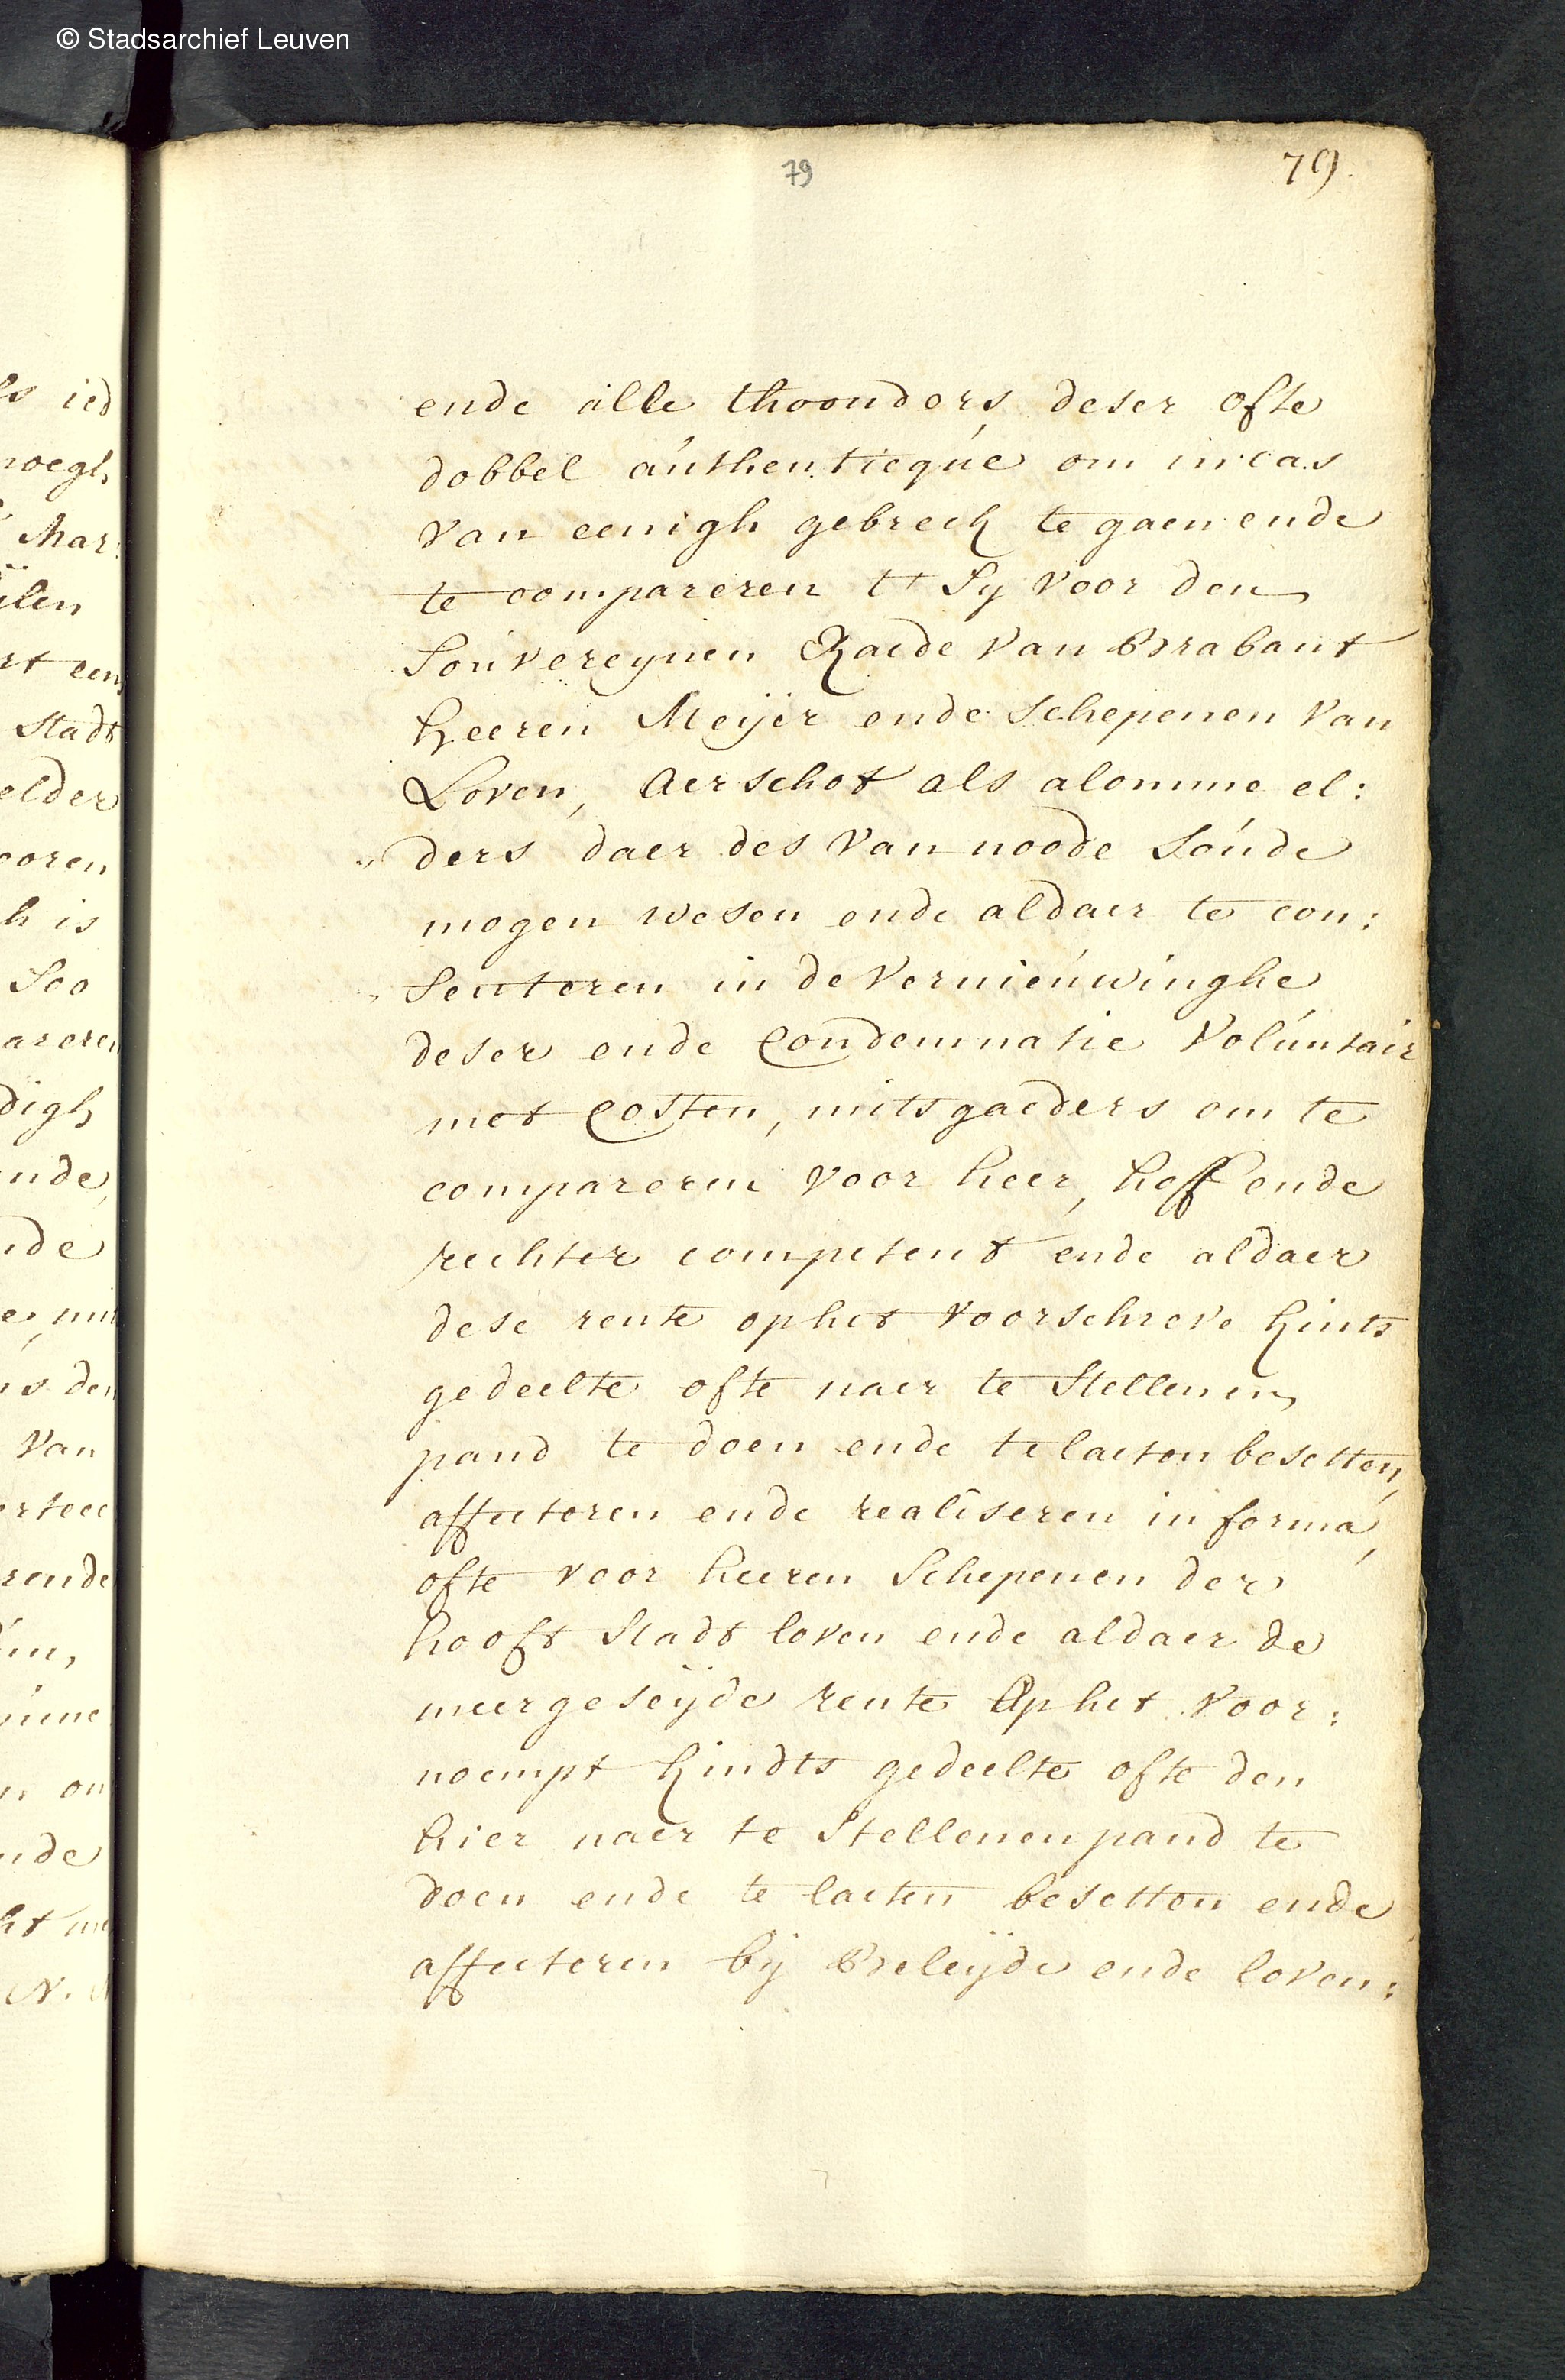 © Stadsarchief Leuven
79
79.
ende alle thoonders, deser ofte
dobbel aúthenticqúe om in cas
van eenigh gebreck te gaen ende
te compareren t' sy voor den
Souvereynen Raede van Brabant
heeren Meÿer ende schepenen van
Loven, Aerschot als alomme el:
ders daer des van noode soúde
mogen wesen ende aldaer te con:
senteren in de verniéuwinghe
deser ende condemnatie volúntair
met costen, mitsgaeders om te
compareren voor heer, hoff ende
rechter competent ende aldaer
dese rente op het voorschreve kints
gedeelte ofte naer te stellenen
pand te doen ende te laeten besetten,
affecteren ende realiseren in forma,
ofte voor heeren schepenen der
hooft stadt loven ende aldaer de
meergeseÿde rente op het voor:
noempt kindts gedeelte ofte den
hier naer te stellenen pand te
doen ende te laeten besetten ende
affecteren bÿ Beleÿde ende loven:
ied
noegh
Mar:
een
Stadt
elder
coren
h is
Soo
areren
digh
ende
nde
van
rende
ende